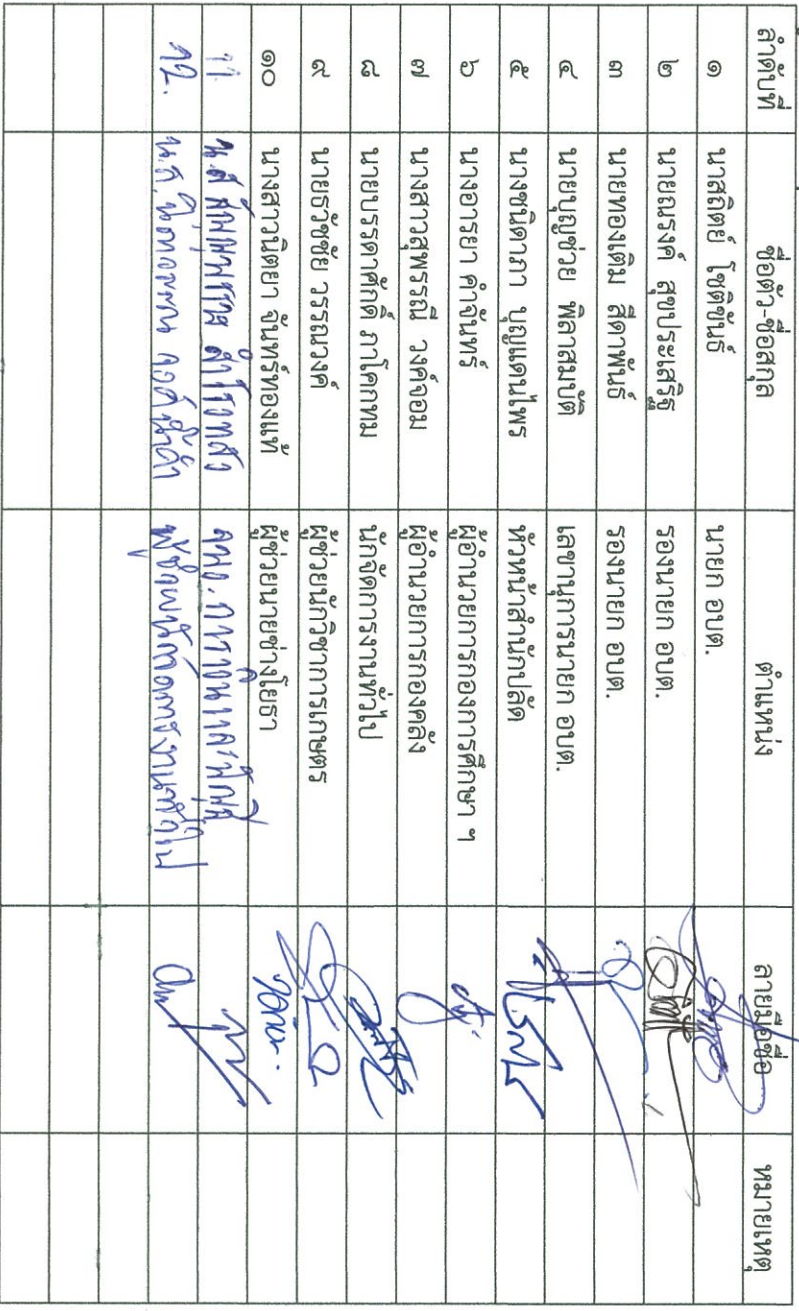 ลำดับที่ ชื่อตัว-ชื่อสกุล ตำแหน่ง ลายมือชื่อ หมายเหตุ
๑ นาสถิตย์ โชติขันธ์ นายก อบต.
๒ นายณรงค์ สุขประเสริฐ รองนายก อบต.
๓ นายทองเติม สีดาพันธ์ รองนายก อบต.
๔ นายบุญช่วย พิลาสมบัติ เลขานุการนายก อบต.
๕ นางชนิดาภา บุญแดนไพร หัวหน้าสำนักปลัด
๖ นางอารยา คำจันทร์ ผู้อำนวยการกองการศึกษา ฯ
๗ นางสาวสุพรรณี วงค์จอม ผู้อำนวยการกองคลัง
๘ นายบรรดาศักดิ์ ภาโคกทม นักจัดการงานทั่วไป
๙ นายธวัชชัย วรรณวงค์ ผู้ช่วยนักวิชาการเกษตร
๑๐ นางสาวนิตยา จันทร์ทองแท้ ผู้ช่วยนายช่างโยธา
11. น.ส. จพง.การเงินและบัญชี
12. น.ส. ผู้ช่วยนักจัดการงานทั่วไป